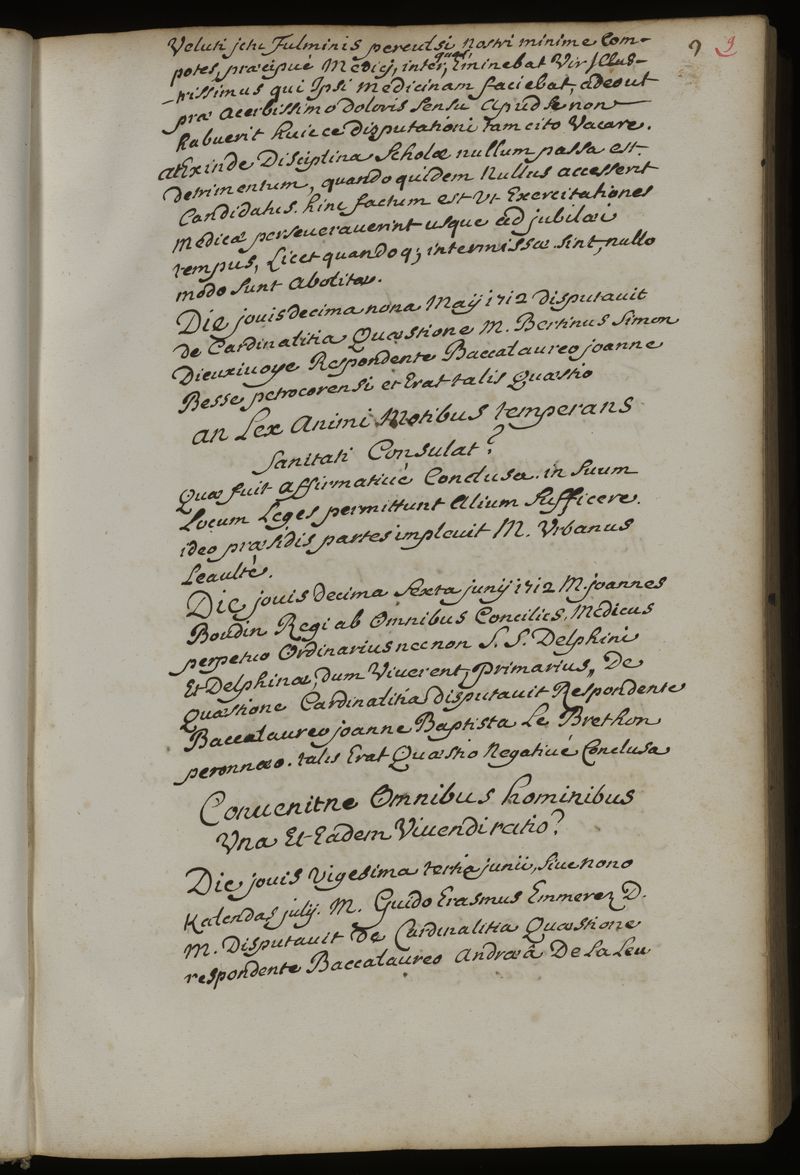 9 9
Veluti jctu Fulminis perculsi nostri minime Com-
potes, præcipuè Medicj, inter quos Eminebat Vir Jllus-
-trissimus qui Ipsi medicinam faciebat, adeout
præ acerbissimo doloris sensu apud se non
habuerit huicce disputationi tam cito Vacare.
at Exinde Disciplina Scholæ nullum passa est
detrimentum, quandoquidem Nullus accesserit
Candidatus. hinc factum est Vt Exercitationes
Medicæ perseverauerint usque ad jubilæi
tempus, Licet quandoq; intermissæ sint, nullo
modo sunt abolitæ.
Die jouis decima nona Maij 1712 disputauit
de Cardinalitia Quæstione M. Bertinus Simon
Dieuxiuoye Respondente Baccalaureo joanne
Besse petrocorensi et Erat talis Quæstio
an Lex Animi Motibus temperans
Sanitati Consulat?
Quæ fuit affirmatiuè Conclusa. in suum
Locum Leges permittunt alium sufficere.
ideo præsidis partes impleuit M. Vrbanus
Leaulté.
Die jouis decima sexta junij 1712 M. joannes
Boudin Regi ab Omnibus Conciliis, Medicus
perpetuo Ordinarius nec non S. S. Delphini
Et Delphinæ, dum Viuerent, primarius, De
Quæstione Cardinalitia disputauit Respondente
Baccalaureo joanne Baptista Le Brethon
peronnæo. talis Erat Quæstio Negatiuè Conclusa
Conuenitne Omnibus hominibus
Vna Et Eadem Viuendi ratio?
Die jouis Vigesima tertia junii, siue nono
Kalendas julij. M. Guido Erasmus Emmerez D.
M. Disputauit de Cardinalitia Quæstione
respondente Baccalaureo Andræâ De La Leu